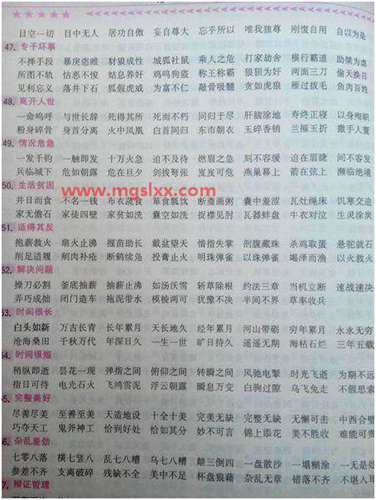 目空一切 目中无人 居功自傲 妄自尊大 忘乎所以 唯我独尊 刚愎自用 自以为是
47. 专干坏事
不择手段 暴戾恣睢 豺狼成性 城狐社鼠 乘人之危 打家劫舍 横行霸道 助桀为虐
所图不轨 怙恶不悛 姑息养奸 鸡鸣狗盗 称王称霸 狼狈为奸 两面三刀 偷天换日
见利忘义 落井下石 狐假虎威 为富不仁 敲骨吸髓 贪如虎狼 雁过拔毛 鱼肉百姓
48. 离开人世
一命呜呼 与世长辞 死得其所 死而不朽 同归于尽 肝脑涂地 寿终正寝 以身殉职
粉身碎骨 身首分离 火中凤凰 白首同归 东市朝衣 玉碎香销 兰摧玉折
49. 情况危急
一发千钧 一触即发 十万火急 迫不及待 燃眉之急 刻不容缓 迫在眉睫 间不容发
兵临城下 危如朝露 危在旦夕 燕巢幕上 箭在弦上 濒临绝境
50. 生活贫困
www.mqslxx.com
并日而食 不名一钱 布衣蔬食 箪食瓢饮 断齑画粥 囊中羞涩 瓦灶绳床 饥寒交迫
家无儋石 家徒四壁 家贫如洗 捉襟见肘 瓦器蚌盘 牛衣对泣 生灵涂炭
51. 适得其反
抱薪救火 扇火止沸 揠苗助长 戴盆望天 惜指失掌 剖腹藏珠 杀鸡取蛋 悬驼就石
削足适履 剜肉补疮 断鹤续凫 投膏止火 明珠弹雀 以火救火
52. 解决问题
操刀必割 釜底抽薪 抽薪止沸 如汤沃雪 斩草除根 约法三章 当机立断 速战速决
弄巧成拙 闭门造车 拖泥带水 模棱两可 犹豫不决 半间不界 草率收兵
53. 时间很长
白头如新 万古长青 长年累月 天长地久 经年累月 河山带砺 穷年累月 永永无穷
沧海桑田 千秋万代 年深日久 一生一世 旷日持久 遥遥无期 海枯石烂 三年五载
54. 时间很短
稍纵即逝 昙花一现 弹指之间 俯仰之间 转瞬之间 风驰电掣 时光飞逝 为期不远
指日可待 电光石火 飞鸿雪泥 浮云朝露 瞬息万变 白驹过隙 乌飞兔走 不假思索
5. 完整美好
尽善尽美 至善至美 天造地设 十全十美 完美无缺 完整无缺 无懈可击 中西合璧
巧夺天工 鬼斧神工 恰到好处 恰如其分 妙不可言 锦上添花 美不胜收
6. 杂乱差劲
七零八落 横七竖八 乱七八糟 乌七八糟 颠三倒四 一盘散沙 一塌糊涂 一无是处
参差不齐 支离破碎 残缺不全 美中不足 杯盘狼藉 杂乱无章 错落不齐 不堪入耳
7. 辩证管理